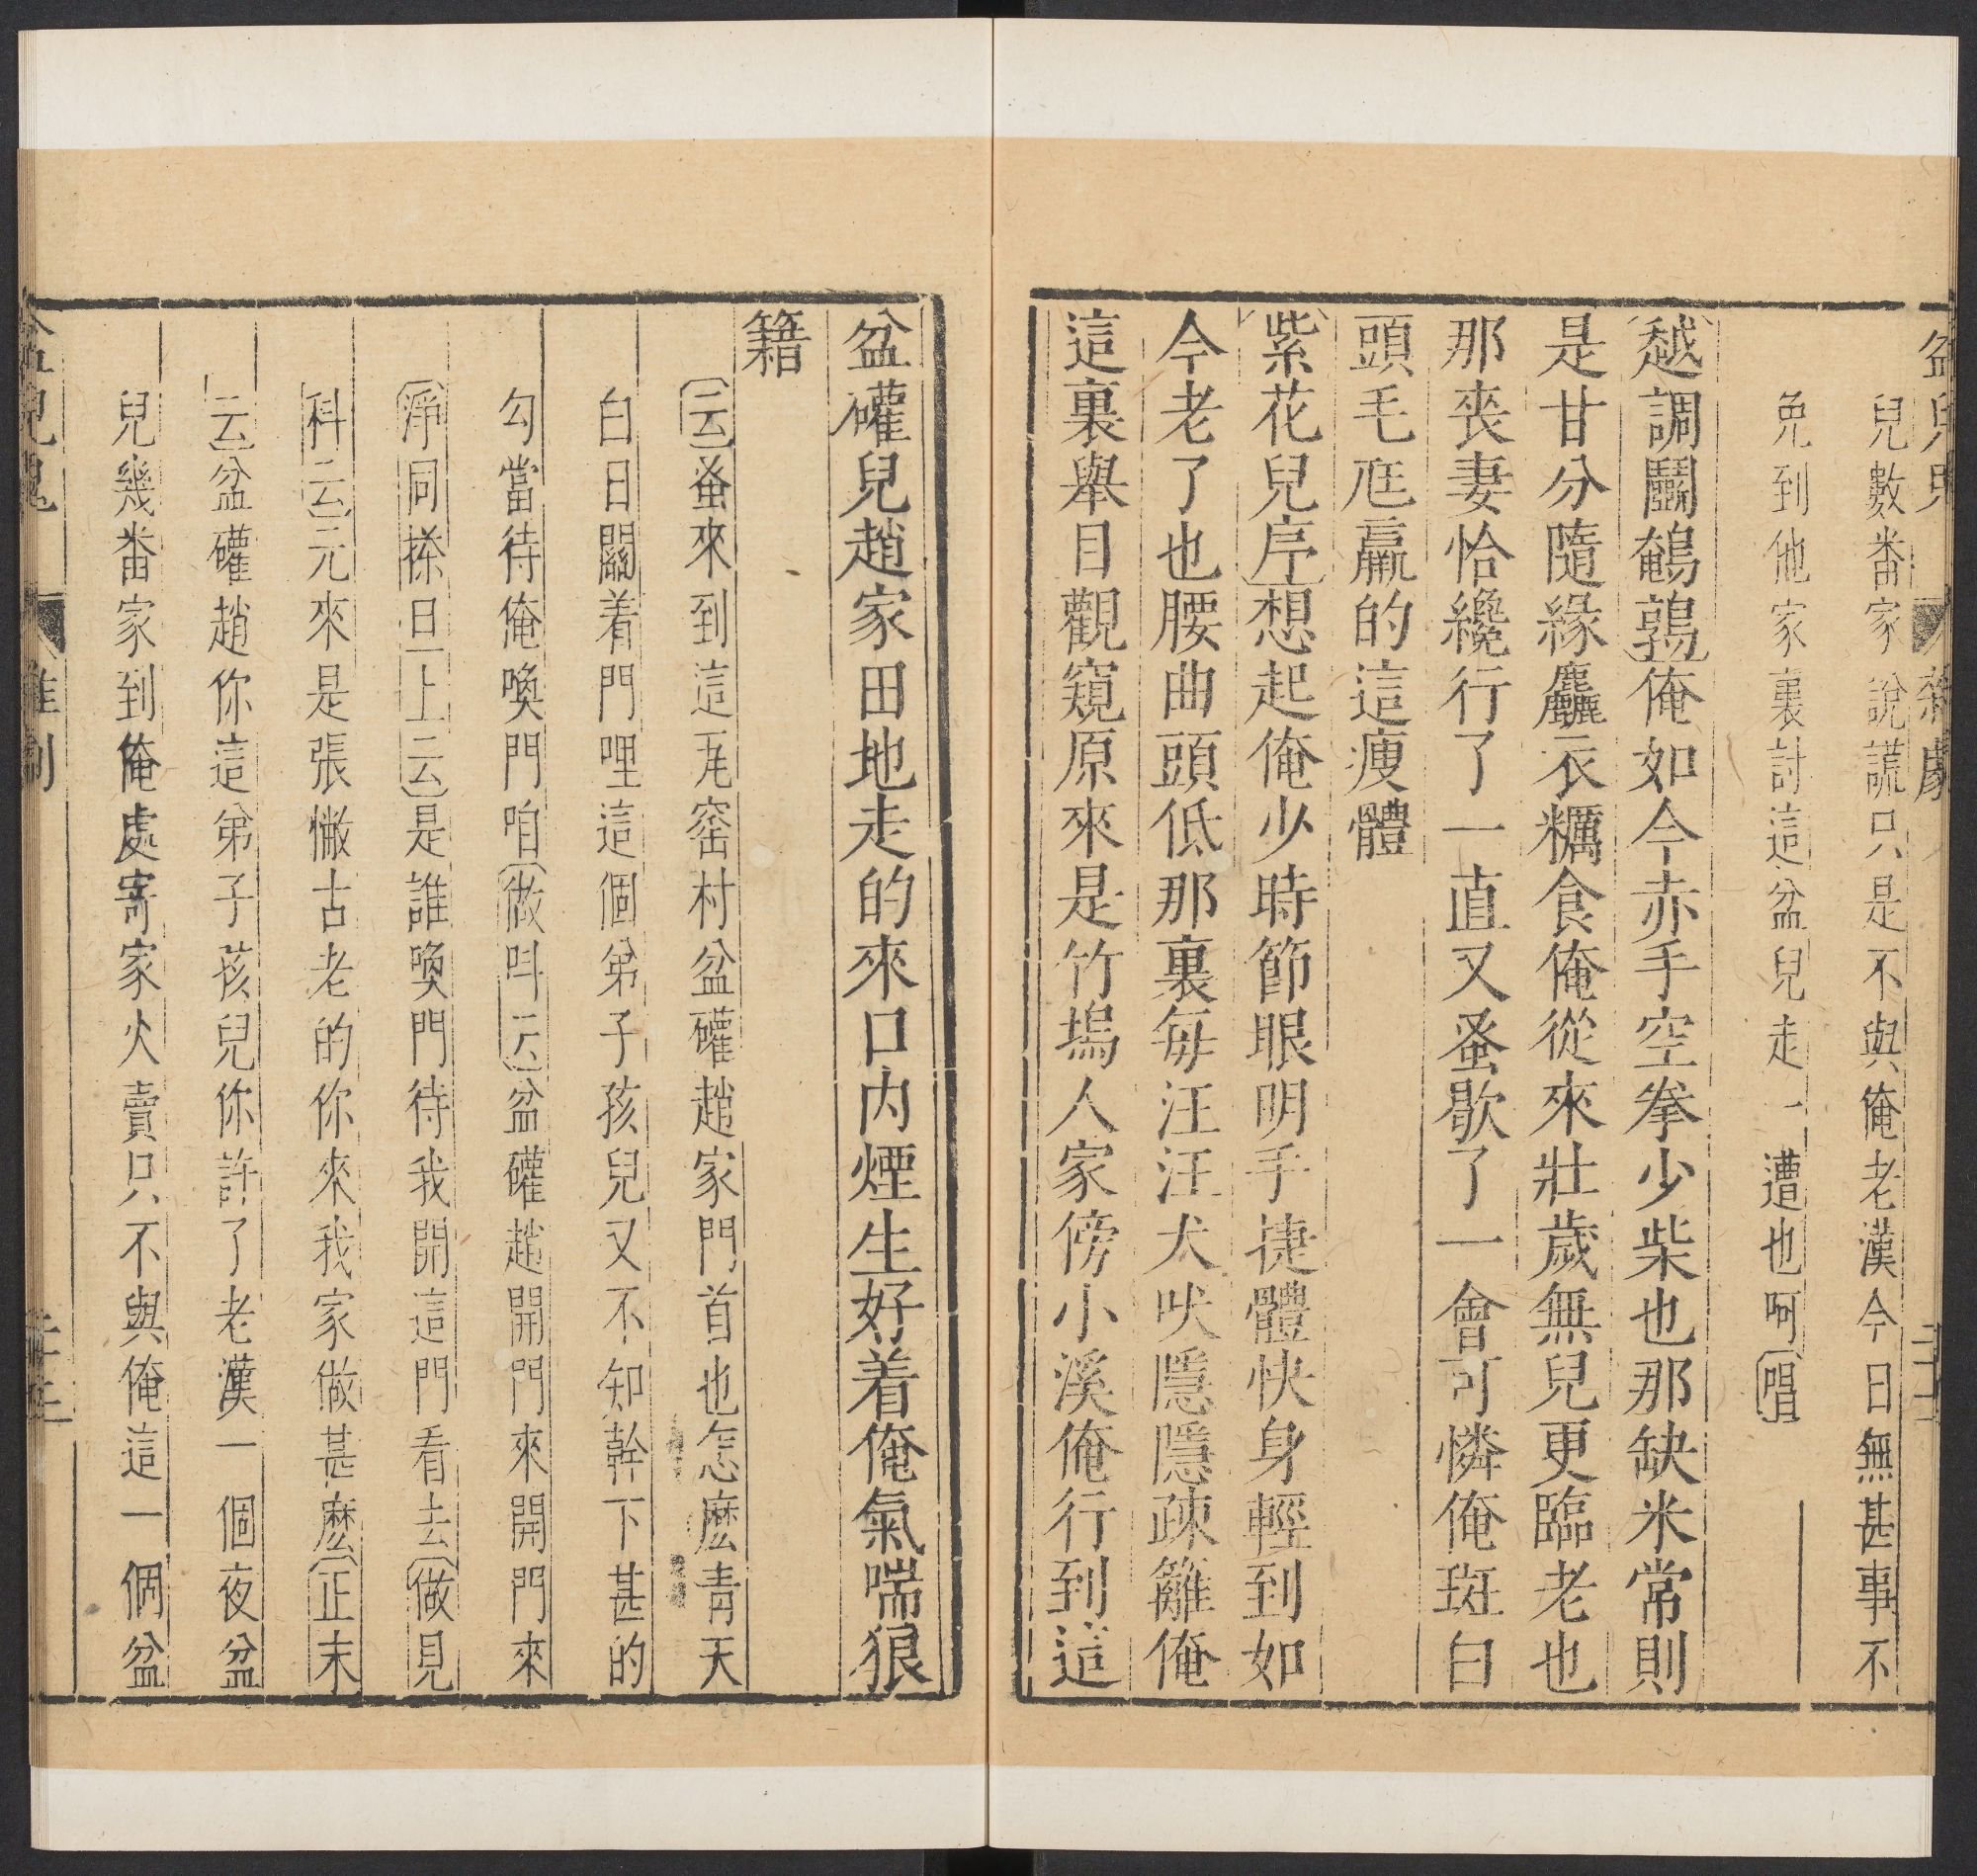 盆兒鬼 雜劇 二十二
兒數番家說謊只是不與俺老漢今日無甚事不
免到他家裏討這盆兒走一遭也呵唱
越調鬭鵪鶉俺如今赤手空拳少柴也那缺米常則
是甘分隨緣麤衣糲食俺從來壯歲無兒更臨老也
那喪妻恰纔行了一直又蚤歇了一會可憐俺斑白
頭毛尫羸的這瘦體
紫花兒序想起俺少時節眼明手捷體快身輕到如
今老了也腰曲頭低那裏每汪汪犬吠隱隱疎籬俺
這裏舉目觀窺原來是竹塢人家傍小溪俺行到這
盆礶兒趙家田地走的來口內煙生好着俺氣喘狠
籍
云蚤來到這瓦窑村盆礶趙家門首也怎麽青天
白日關着門哩這個弟子孩兒又不知幹下甚的
勾當待俺喚門咱做呌云盆礶趙開門來開門來
淨同搽旦上云是誰喚門待我開這門看去做見
科云元來是張㦒古老的你來我家做甚麽正末
云盆礶趙你這弟子孩兒你許了老漢一個夜盆
兒幾番家到俺處寄家火賣只不與俺這一個盆
盆兒鬼 雜劇